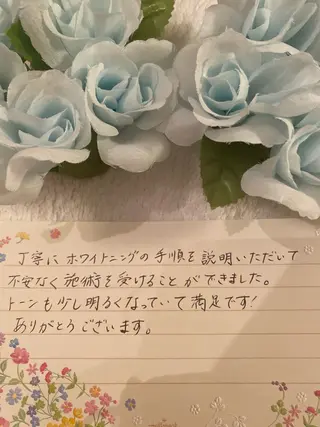 丁寧にホワイトニングの手順を説明いただいて
不安なく施術を受けることができました。
トーンも少し明るくなっていて満足です!
ありがとうございます。